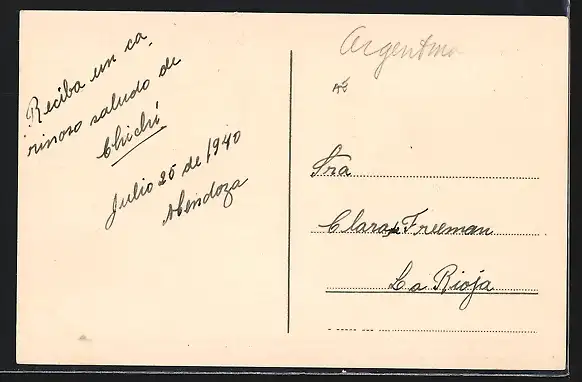 Reciba un ca
rinoso saludo de
Chichí
Julio 25 de 1940
Mendoza
Argentina
AE
Sra
Clara de Freeman
La Rioja